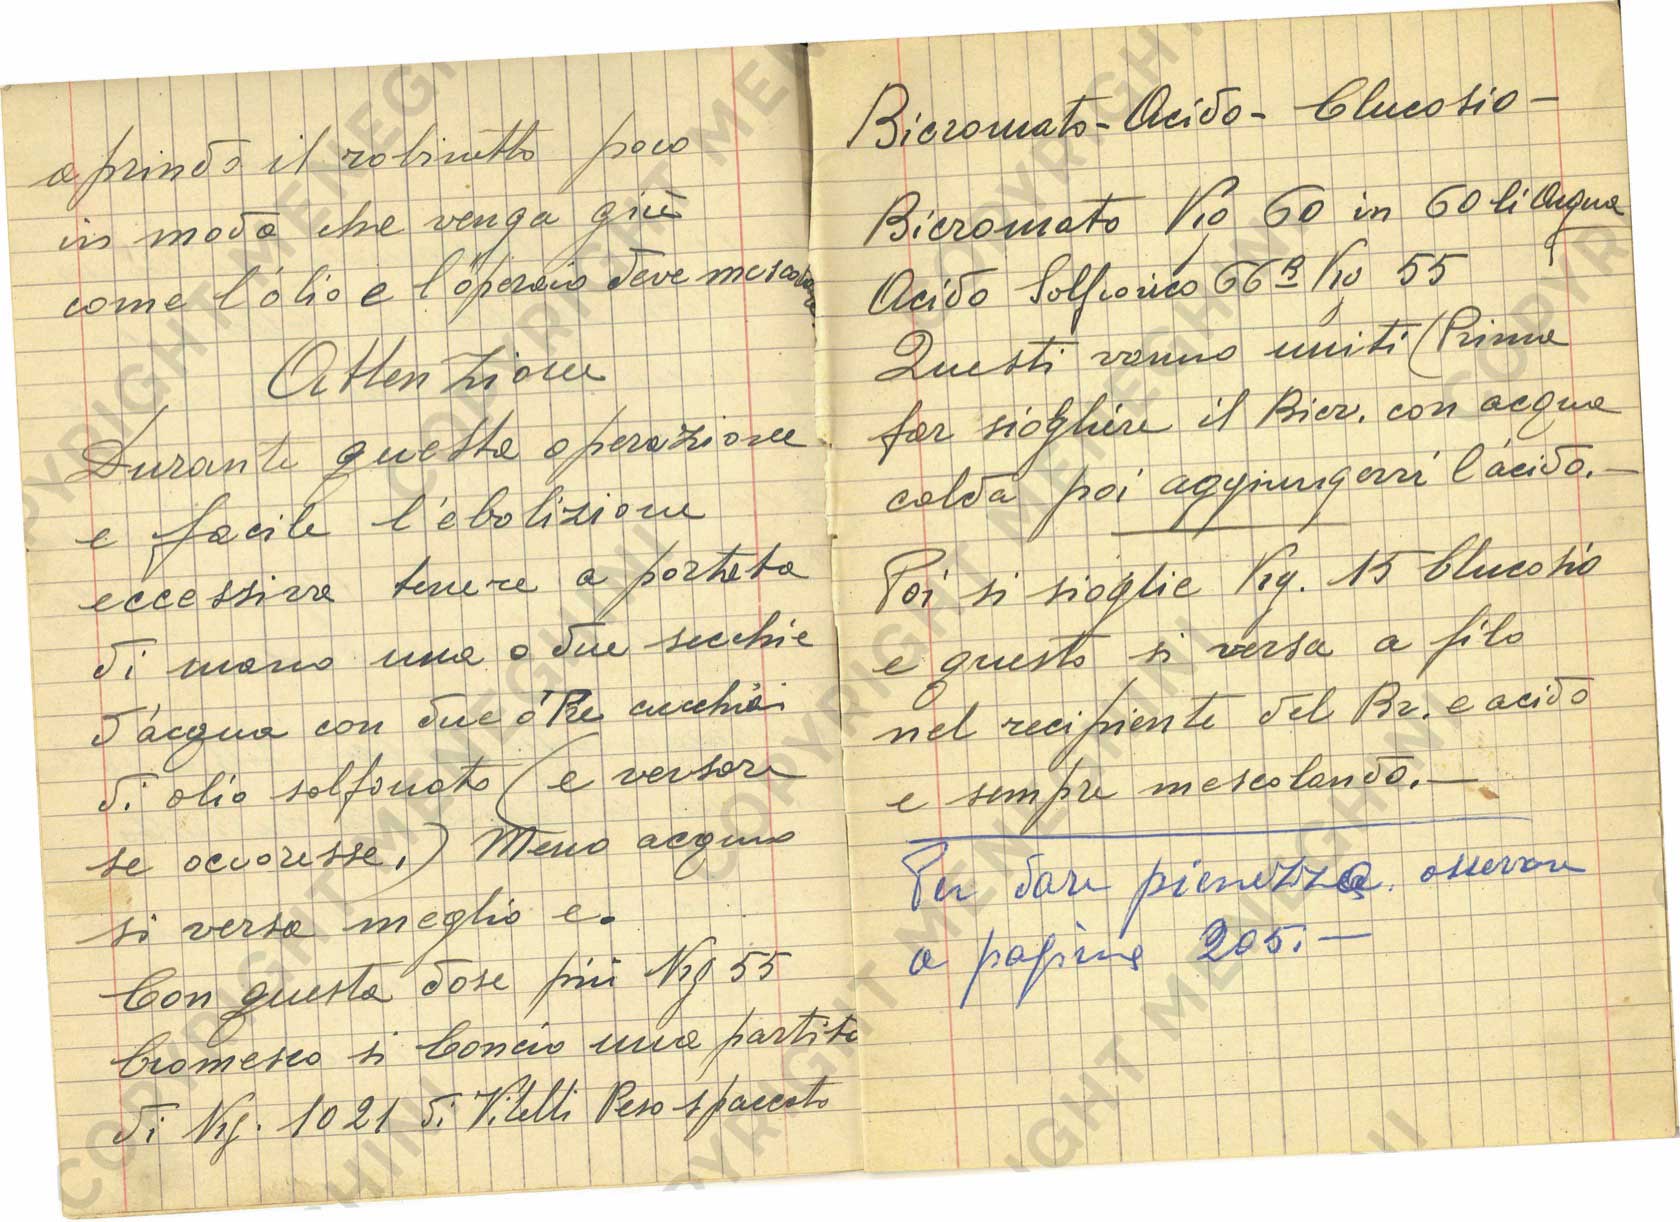 aprindo il robinetto poco
in modo che venga giù
come l'olio e l'operaio deve mescolare.
Attenzione
Durante questa operazione
e facile l'ebolizione
eccessiva tenere a portata
di mano una o due secchie
d'acqua con due o tre cucchiai
di olio solfonato (e versare
se occoresse.) Meno acqua
si versa meglio e.
Con questa dose più Kg 55
Cromesco si Concio una partita
di Kg. 1021 di Vitelli Peso spaccato
Bicromato-Acido-Glucosio-
Bicromato Kg 60 in 60 li Acqua
Acido Solforico 66 B Kg 55
Questi vanno uniti (Prima
far siogliere il Bicr. con acqua
calda poi aggiungervi l'acido.-
Poi si sioglie Kg. 15 Glucosio
e questo si versa a filo
nel recipiente del Br. e acido
e sempre mescolando.-
Per dare pienezza. osservare
a pagina 205.-
COPYRIGHT MENEGHINI